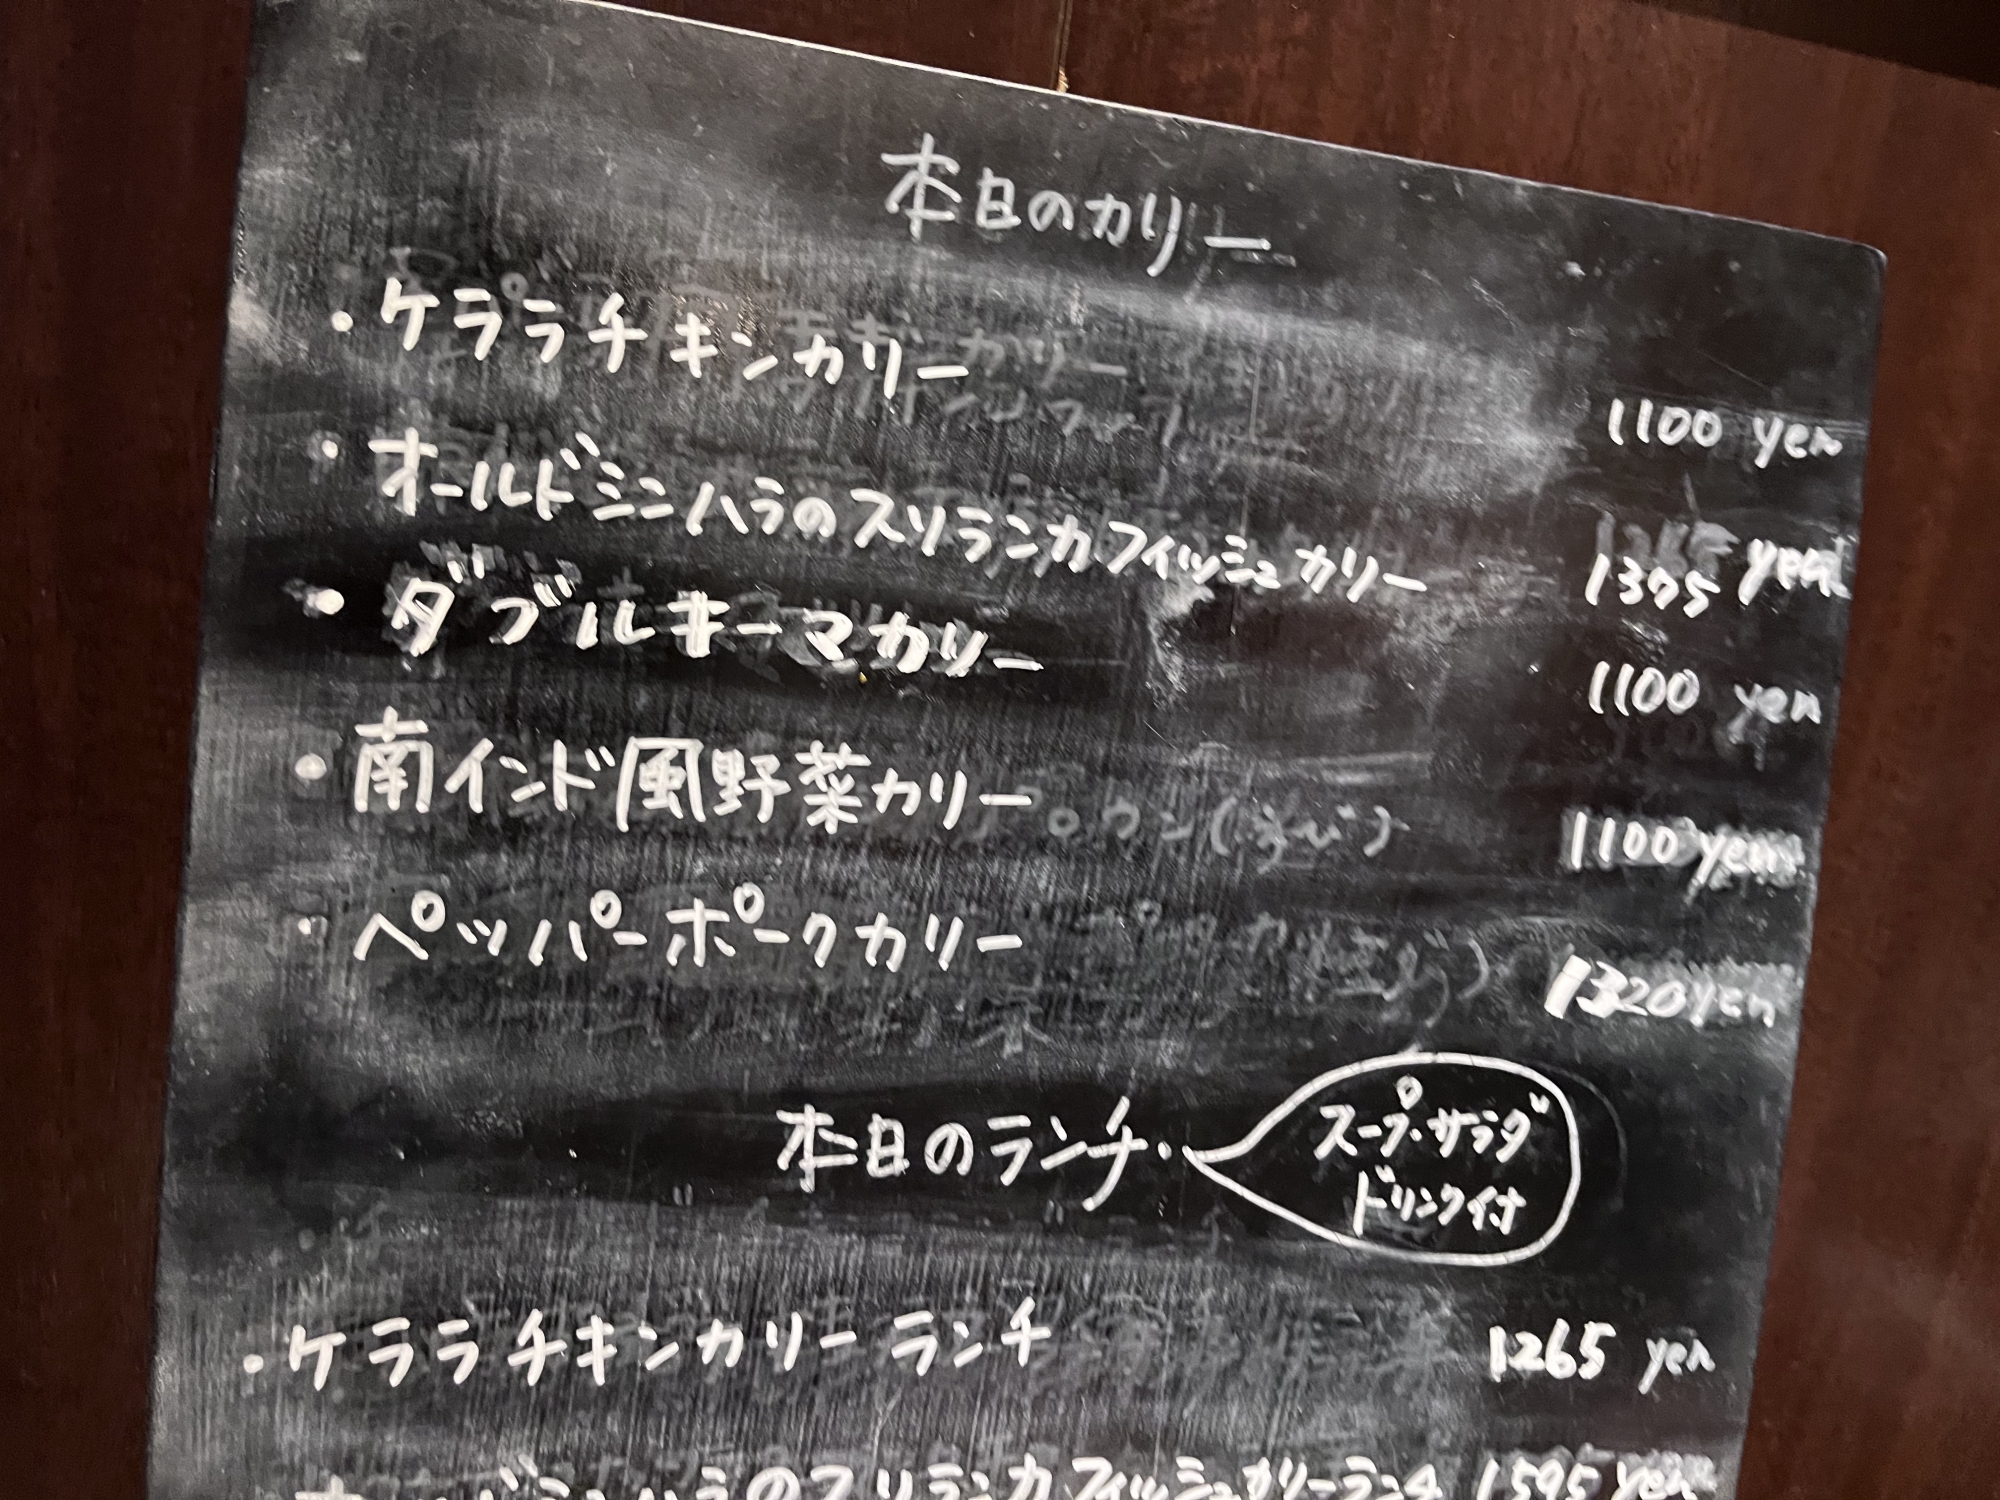 本日のカリー
・ケララチキンカリー 1100 yen
・オールドミンハラのスリランカフィッシュカリー 1375 yen
・ダブルキーマカリー 1100 yen
・南インド風野菜カリー 1100 yen
・ペッパーポークカリー 1320 yen
本日のランチ・
スープ・サラダ
ドリンク付
・ケララチキンカリー ランチ 1265 yen
オールドミンハラのスリランカフィッシュカリーランチ 1595 yen